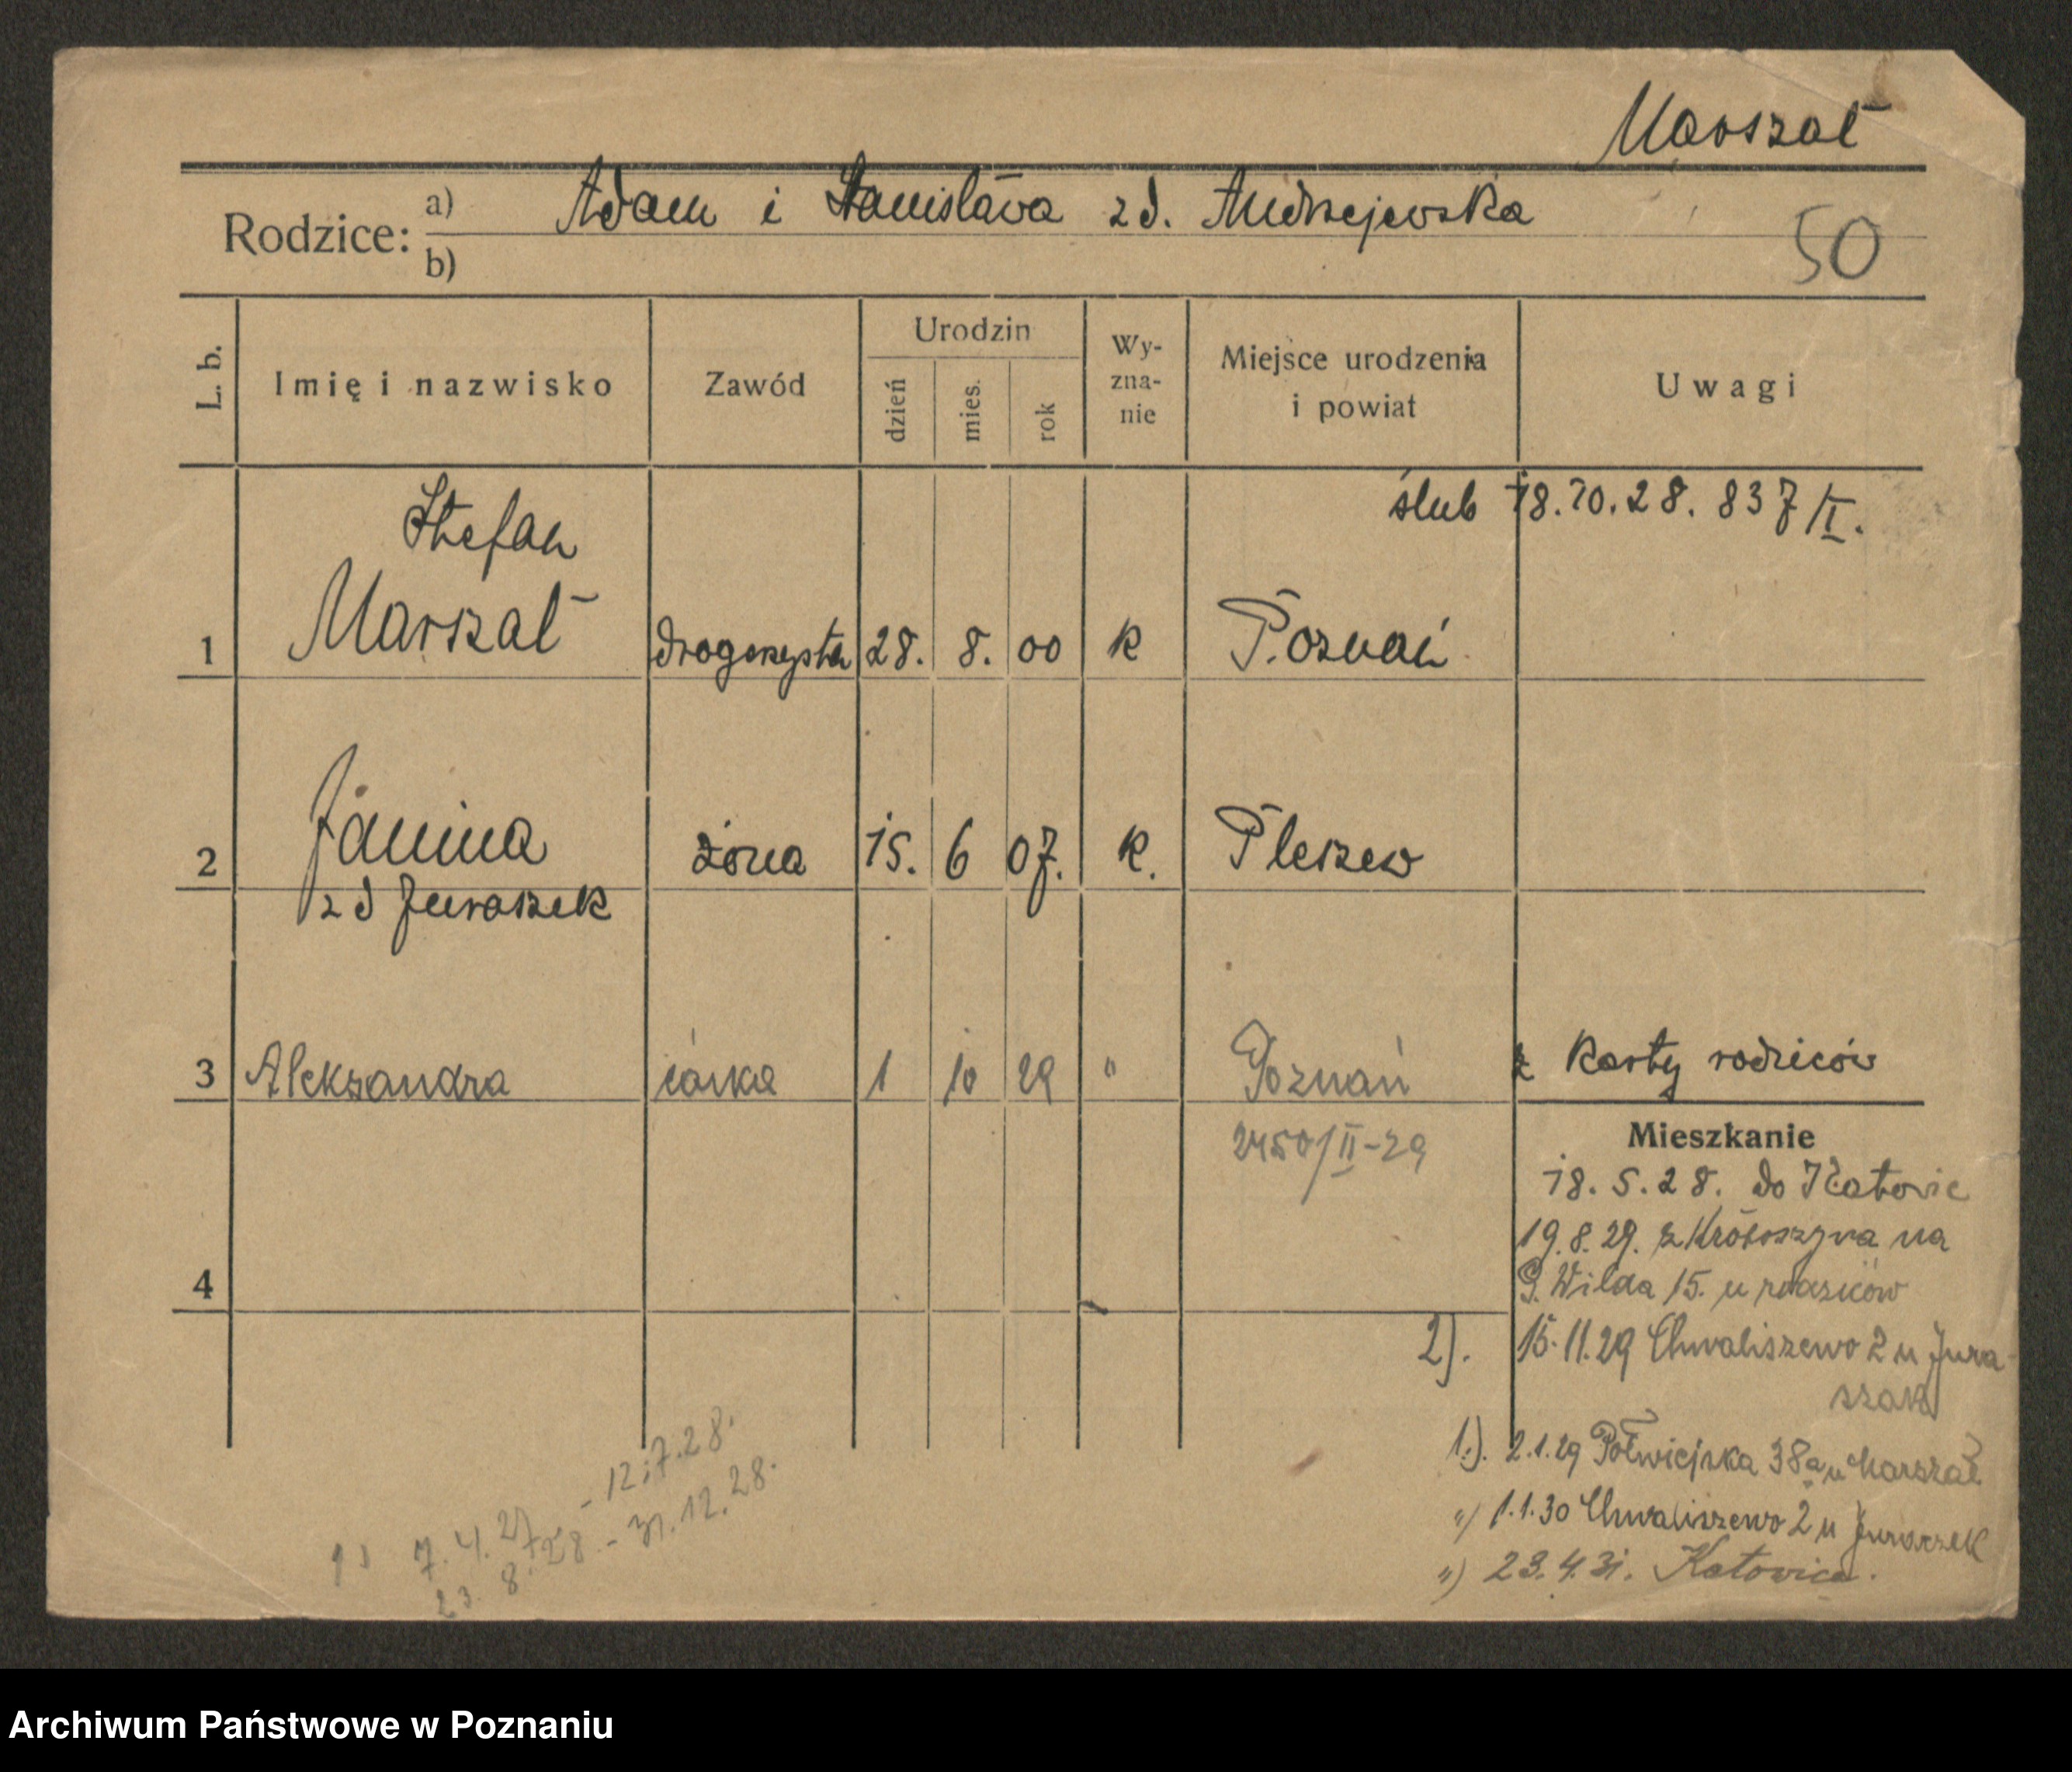 Marszał
Rodzice: a) Adam i Stanisława zd. Andrzejewska
b)
50
L. b.
Imię i nazwisko
Zawód
Urodzin
dzień
mies.
rok
Wy-
zna-
nie
Miejsce urodzenia
i powiat
Uwagi
ślub 18.10.28. 837/I.
Stefan
1 Marszał drogerzysta 28. 8. 00 k Poznań
2 Janina żona 15. 6 07. k. Pleszew
zd Juraszek
3 Aleksandra córka 1 10 29 " Poznań z karty rodziców
2450/II-29
Mieszkanie
18.5.28. do Katowic
19.8.29. z Krotoszyna na
G. Wilda 15. u rodziców
4
2). 15.11.29 Chwaliszewo 2 u Jura-
szak
1.). 2.1.29 Półwiejska 38a u Marszał
"/ 1.1.30 Chwaliszewo 2 u Juraszek
") 23.4.31. Katowice.
1) 7.4.27 - 12.7.28.
23.8.28. - 31.12.28.
Archiwum Państwowe w Poznaniu